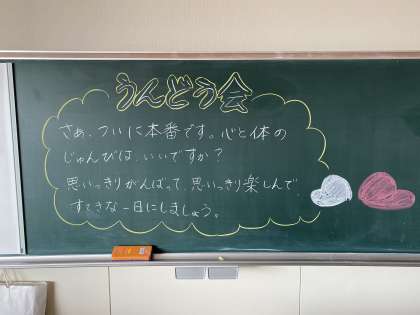 うんどう会
さぁ、ついに本番です。心と体の
じゅんびは、いいですか？
思いっきりがんばって、思いっきり楽しんで
すてきな一日にしましょう。